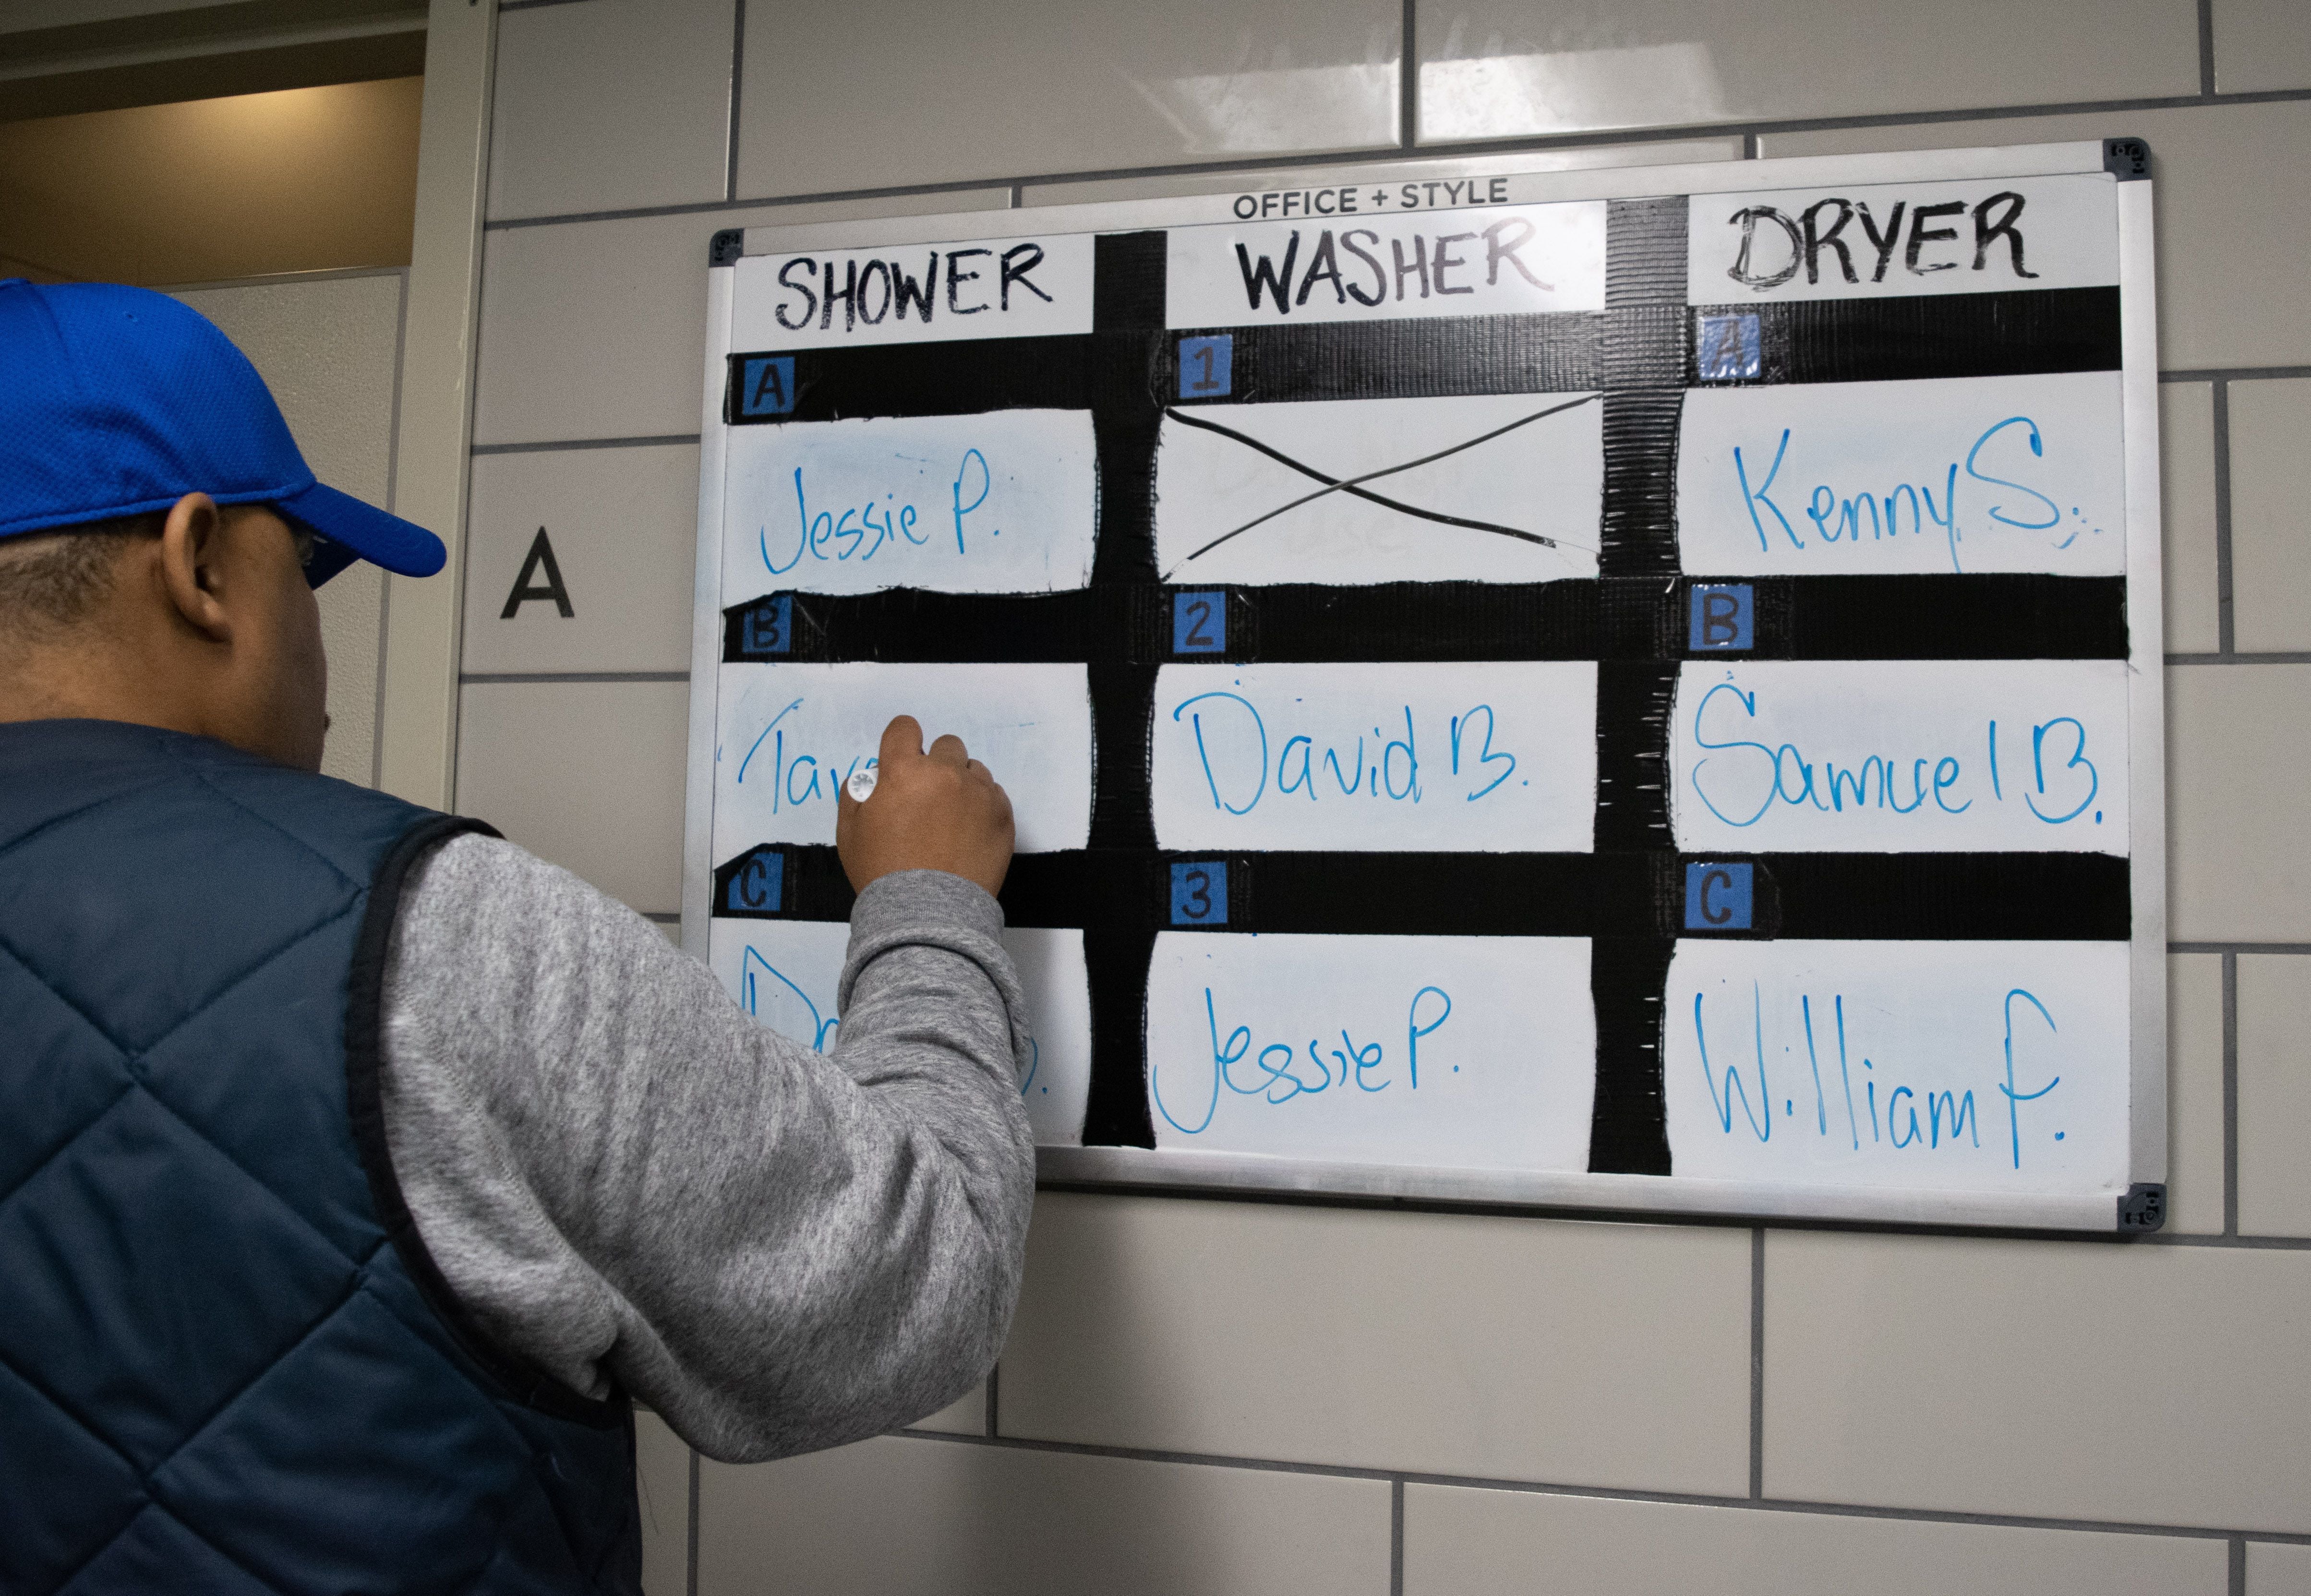 OFFICE + STYLE
SHOWER WASHER DRYER
A 1 A
Jessie P. Kenny S.
A
B 2 B
David B. Samuel B.
C 3 C
Jessie P. William F.